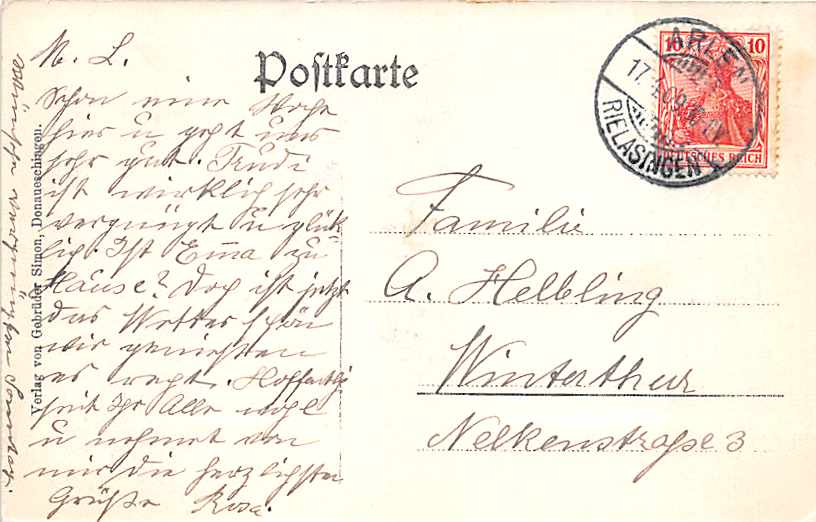 Postkarte
M. L.
Schon eine Woche
hier u geht uns
sehr gut. Trudi
ist wirklich sehr
vergnügt u glük-
lich. Ist Emma zu
Hause? Doch ist jetzt
das Wetter schön
wir genießen
es recht. Hoffentlich
seit Ihr Alle wohl
u nehmet von
mir die herzlichsten
Grüße Rosa.
vergnügten Sonntag.
Verlag von Gebrüder Simon, Donaueschingen.
ARLEN
17. 09
RIELASINGEN
10 10
DEUTSCHES REICH
Familie
A. Helbling
Winterthur
Nelkenstraße 3